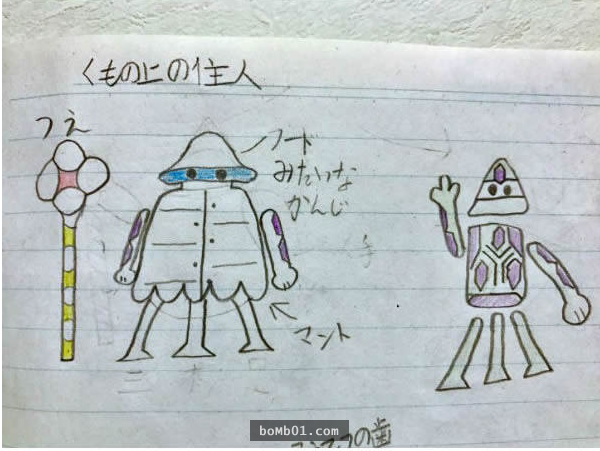 くもの上の住人
つえ
フード
みたいな
かんじ
マント
の歯
boMb01.com